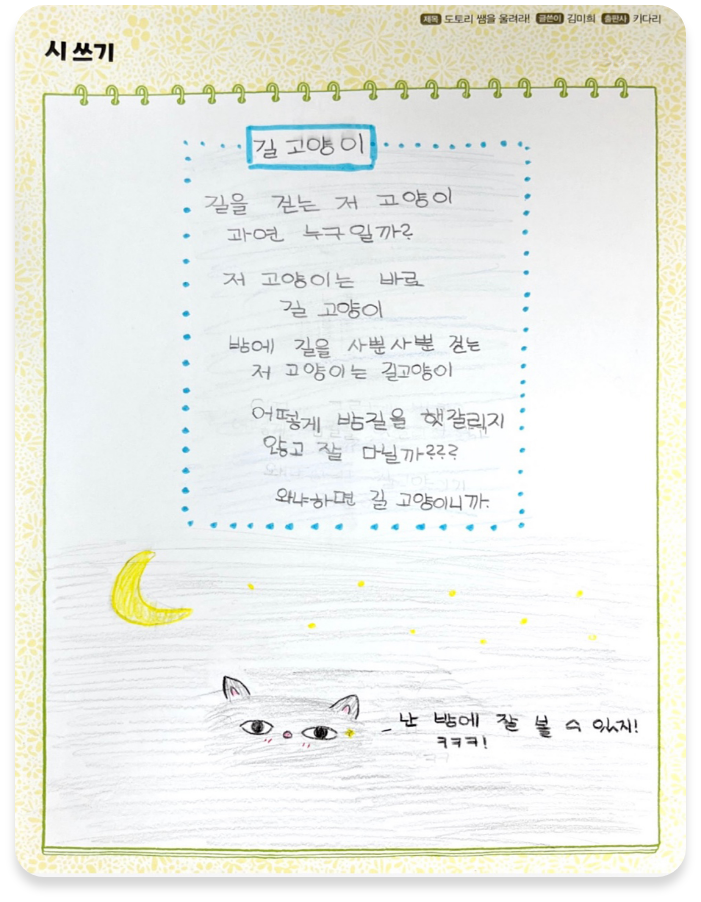 제목 도토리 쌤을 울려라! 글쓴이 김미희 출판사 키다리
시 쓰기
길 고양이
길을 걷는 저 고양이
과연 누구일까?
저 고양이는 바로
길 고양이
밤에 길을 사뿐사뿐 걷는
저 고양이는 길고양이
어떻게 밤길을 햇갈리지
않고 잘 다닐까???
왜냐하면 길 고양이니까.
난 밤에 잘 볼 수 있지!
ㅋㅋㅋ!